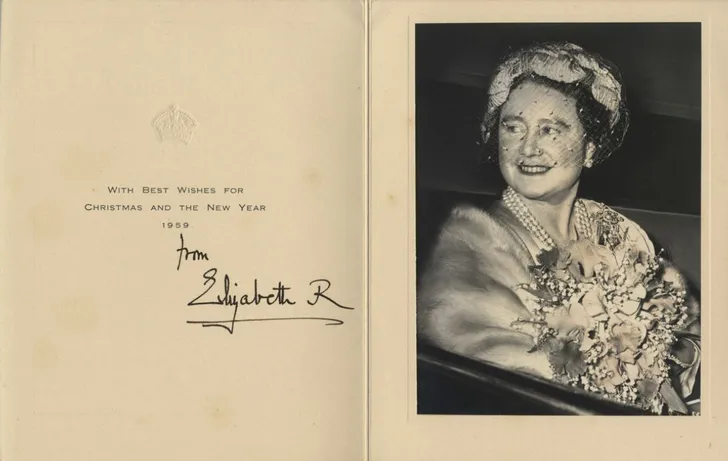 With Best Wishes for
Christmas and the New Year
1959
from
Elizabeth R